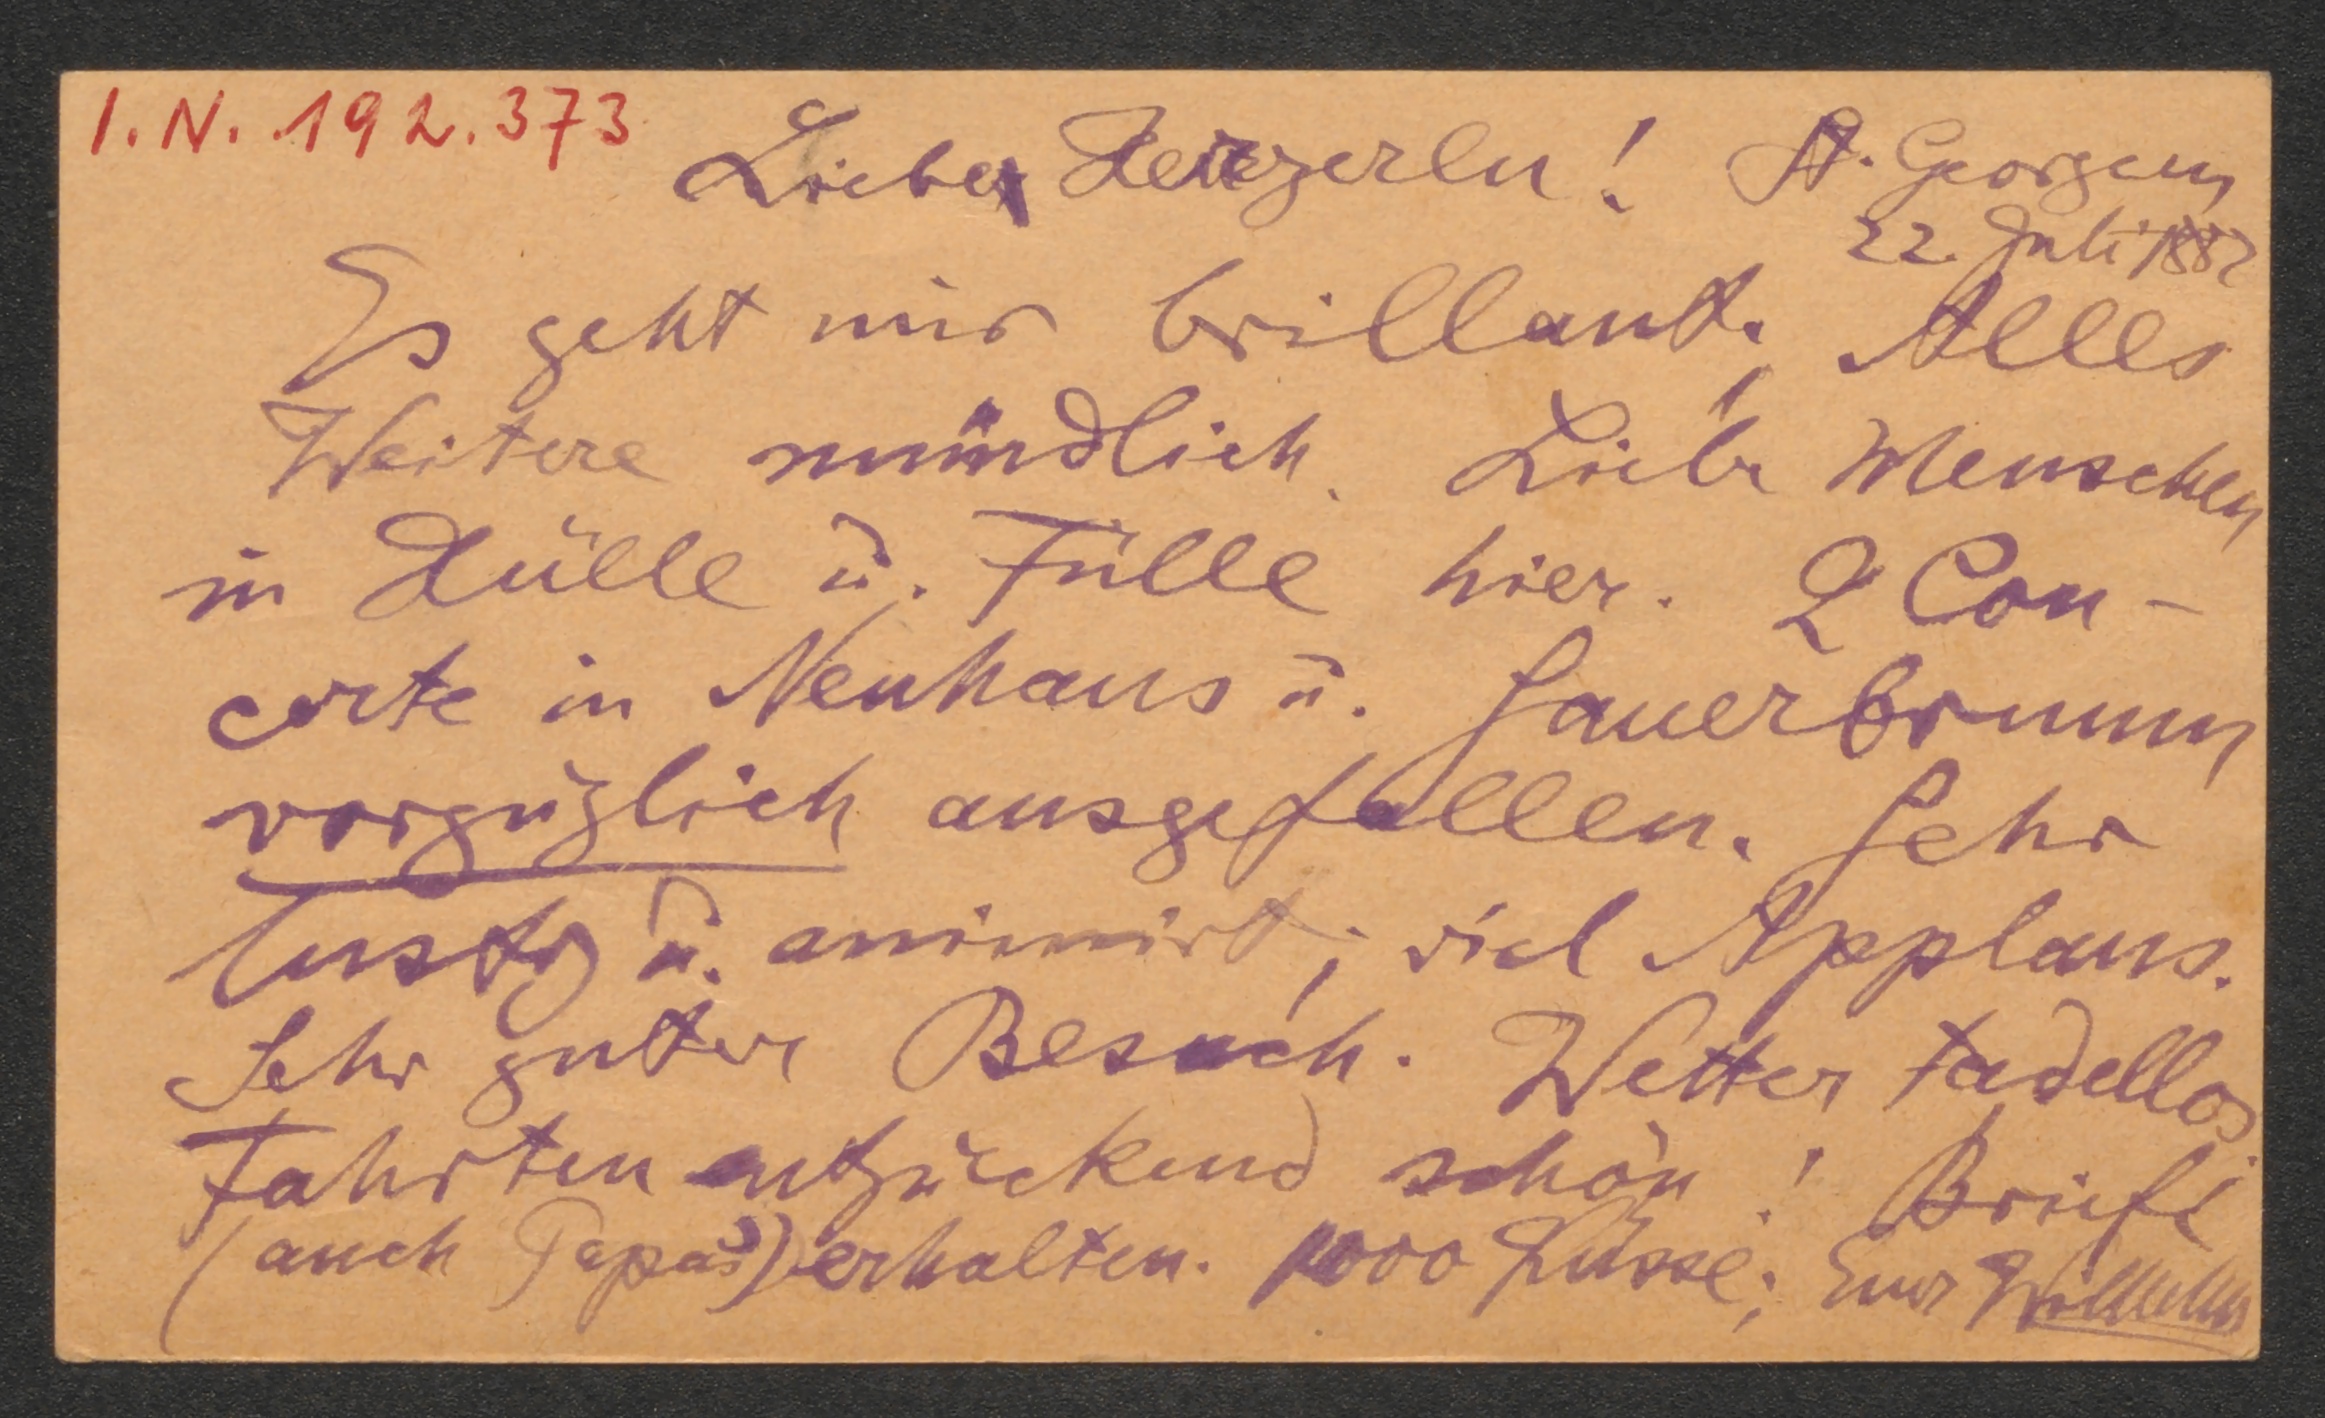 I. N. 192.373
Liebe Herzerln! St. Georgen
22. Juli 1882
Es geht mir brillant. Alles
Weitere mündlich. Liebe Menschen
in Hülle u. Fülle hier. 2 Con-
certe in Neuhaus u. Sauerbrunn
vorzüglich ausgefallen. Sehr
lustig u. animirt; viel Applaus.
Sehr guter Besuch. Wetter tadellos
Fahrten entzückend schön! Briefe
(auch Papa's) erhalten. 1000 Küsse; Euer Wilhelm